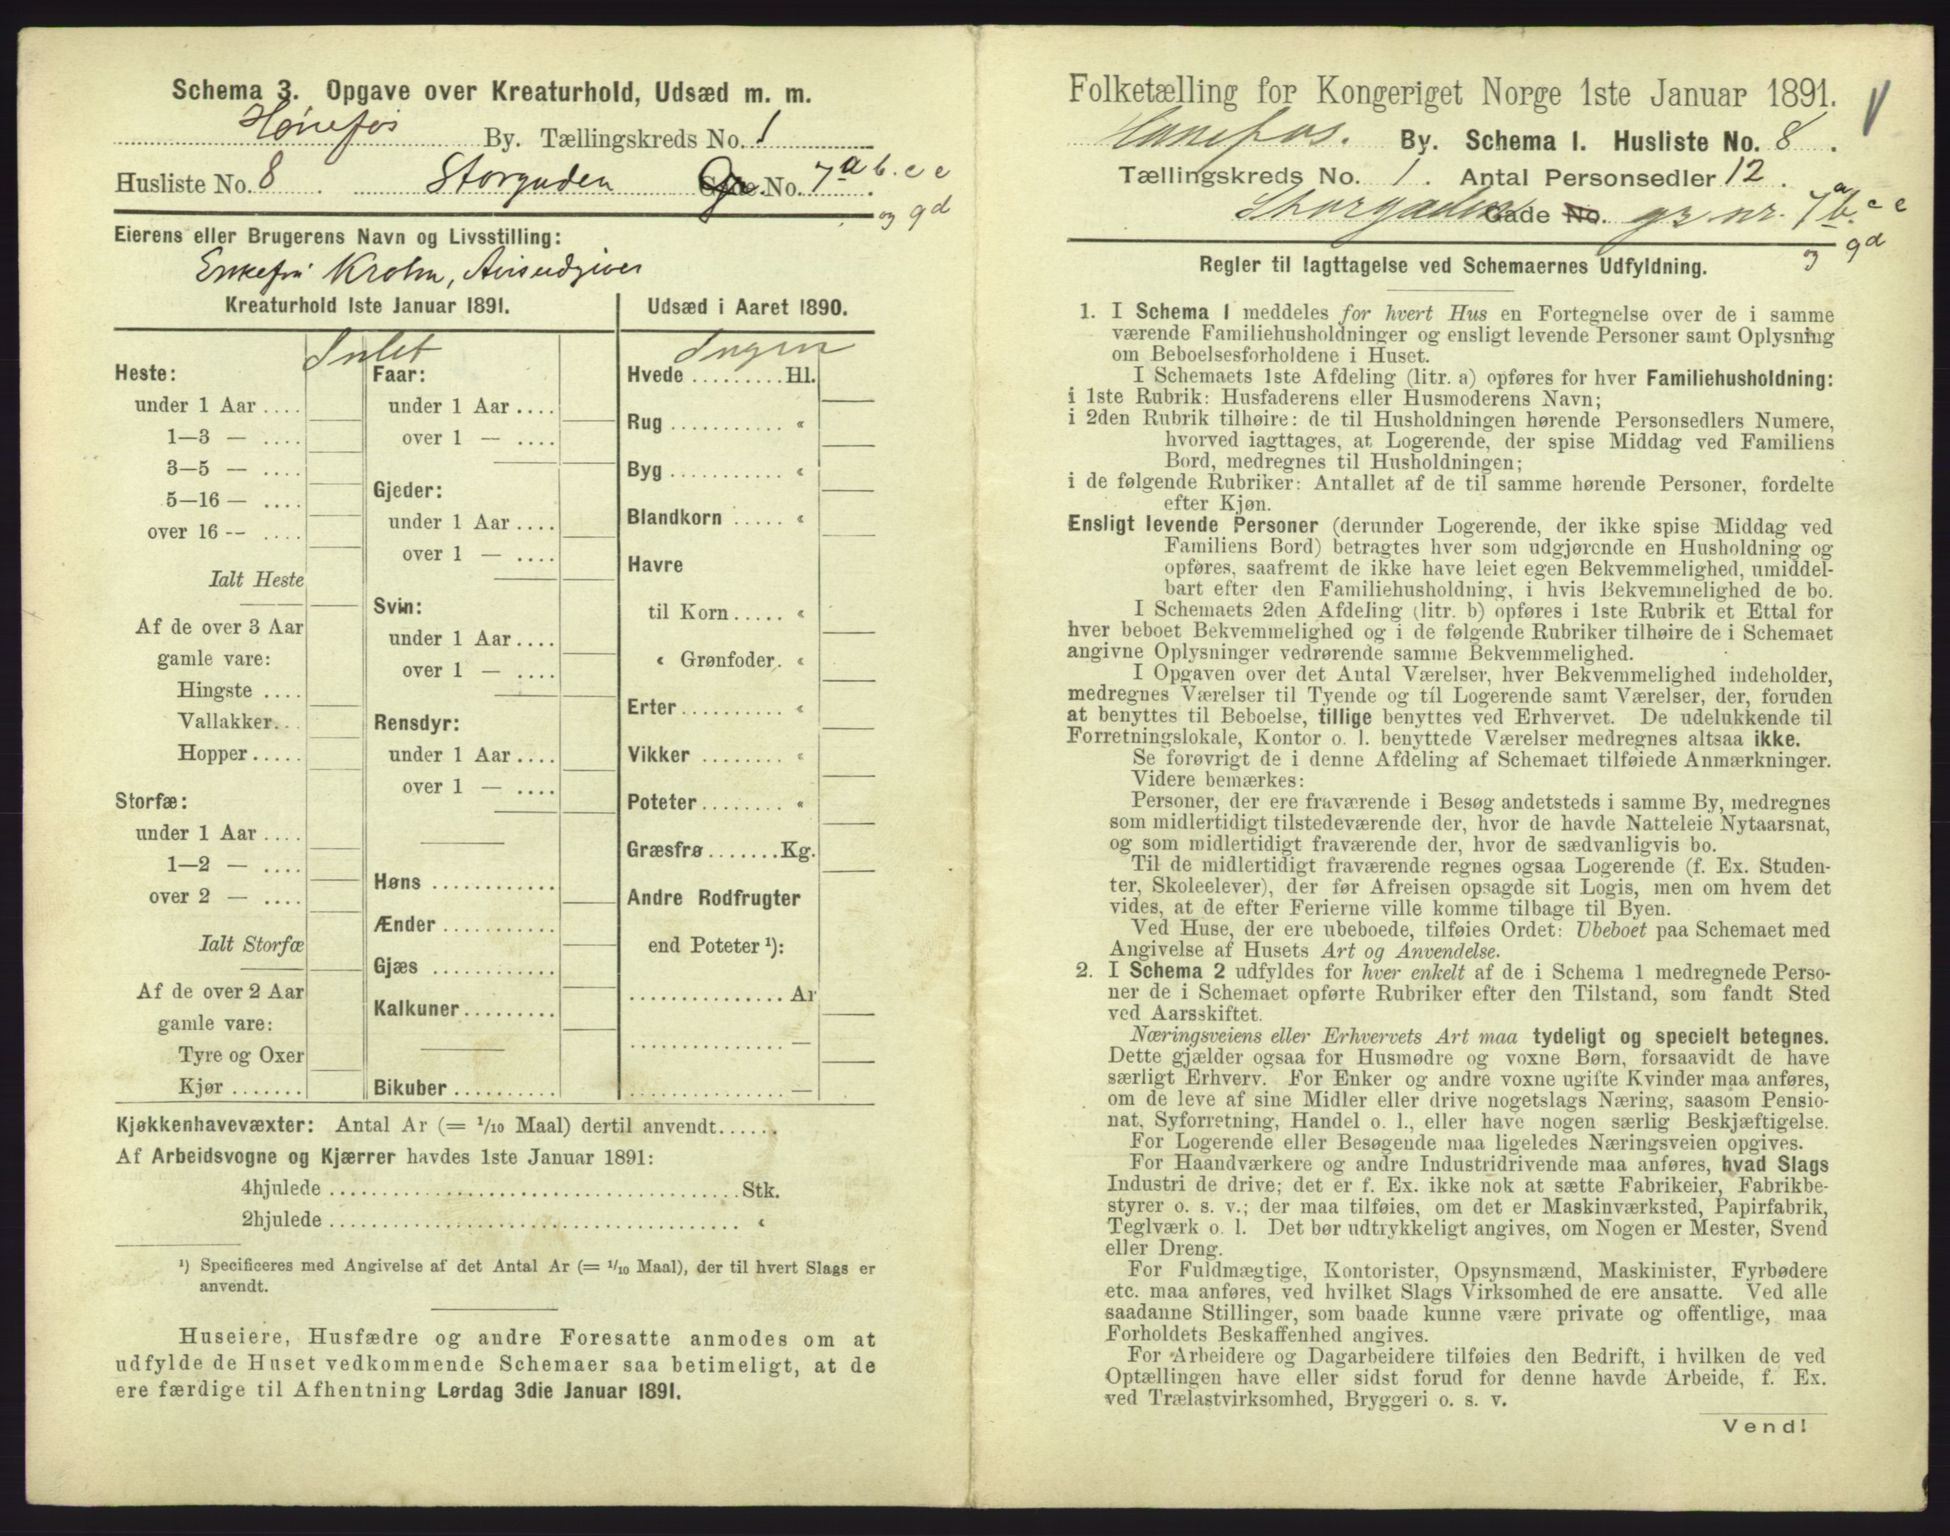 Schema 3. Opgave over Kreaturhold, Udsæd m. m.
Hønefos By. Tællingskreds No. 1
Husliste No. 8. Storgaden Gr. No. 7a b. c e
og 9d
Eierens eller Brugerens Navn og Livsstilling:
Enkefru Krohn, Avisudgiver
Kreaturhold 1ste Januar 1891.
Intet
Heste:
under 1 Aar ....
1—3 — ....
3—5 — ....
5—16 — ....
over 16 -- ....
Ialt Heste
Af de over 3 Aar
gamle vare:
Hingste ....
Vallakker...
Hopper.....
Storfæ:
under 1 Aar ....
1—2 — ....
over 2 — ....
Ialt Storfæ
Af de over 2 Aar
gamle vare:
Tyre og Oxer
Kjør .......
Faar:
under 1 Aar ....
over 1 — ....
Gjeder:
under 1 Aar ....
over 1 — ....
Svin:
under 1 Aar ....
over 1 — ....
Rensdyr:
under 1 Aar ....
over 1 — ....
Høns ............
Ænder ...........
Gjæs ............
Kalkuner.........
Bikuber ..........
Udsæd i Aaret 1890.
Ingen
Hvede .........Hl.
Rug ........... «
Byg ........... «
Blandkorn ..... «
Havre
til Korn..... «
« Grønfoder. «
Erter.......... «
Vikker ........ «
Poteter........ «
Græsfrø.......Kg.
Andre Rodfrugter
end Poteter ¹):
............... Ar
............... —
............... —
Kjøkkenhavevæxter: Antal Ar (= 1/10 Maal) dertil anvendt......
Af Arbeidsvogne og Kjærrer havdes 1ste Januar 1891:
4hjulede ........................................Stk.
2hjulede ........................................ «
¹) Specificeres med Angivelse af det Antal Ar (= 1/10 Maal), der til hvert Slags er
anvendt.
Huseiere, Husfædre og andre Foresatte anmodes om at
udfylde de Huset vedkommende Schemaer saa betimeligt, at de
ere færdige til Afhentning Lørdag 3die Januar 1891.
Folketælling for Kongeriget Norge 1ste Januar 1891.
Hønefos. By. Schema I. Husliste No. 8.
Tællingskreds No. 1. Antal Personsedler 12.
Storgaden Gade No. gr nr. 7a b. c e
og 9d
Regler til Iagttagelse ved Schemaernes Udfyldning.
1. I Schema 1 meddeles for hvert Hus en Fortegnelse over de i samme
værende Familiehusholdninger og ensligt levende Personer samt Oplysning
om Beboelsesforholdene i Huset.
I Schemaets 1ste Afdeling (litr. a) opføres for hver Familiehusholdning:
i 1ste Rubrik: Husfaderens eller Husmoderens Navn;
i 2den Rubrik tilhøire: de til Husholdningen hørende Personsedlers Numere,
hvorved iagttages, at Logerende, der spise Middag ved Familiens
Bord, medregnes til Husholdningen;
i de følgende Rubriker: Antallet af de til samme hørende Personer, fordelte
efter Kjøn.
Ensligt levende Personer (derunder Logerende, der ikke spise Middag ved
Familiens Bord) betragtes hver som udgjørende en Husholdning og
opføres, saafremt de ikke have leiet egen Bekvemmelighed, umiddel-
bart efter den Familiehusholdning, i hvis Bekvemmelighed de bo.
I Schemaets 2den Afdeling (litr. b) opføres i 1ste Rubrik et Ettal for
hver beboet Bekvemmelighed og i de følgende Rubriker tilhøire de i Schemaet
angivne Oplysninger vedrørende samme Bekvemmelighed.
I Opgaven over det Antal Værelser, hver Bekvemmelighed indeholder,
medregnes Værelser til Tyende og til Logerende samt Værelser, der, foruden
at benyttes til Beboelse, tillige benyttes ved Erhvervet. De udelukkende til
Forretningslokale, Kontor o. l. benyttede Værelser medregnes altsaa ikke.
Se forøvrigt de i denne Afdeling af Schemaet tilføiede Anmærkninger.
Videre bemærkes:
Personer, der ere fraværende i Besøg andetsteds i samme By, medregnes
som midlertidigt tilstedeværende der, hvor de havde Natteleie Nytaarsnat,
og som midlertidigt fraværende der, hvor de sædvanligvis bo.
Til de midlertidigt fraværende regnes ogsaa Logerende (f. Ex. Studen-
ter, Skoleelever), der før Afreisen opsagde sit Logis, men om hvem det
vides, at de efter Ferierne ville komme tilbage til Byen.
Ved Huse, der ere ubeboede, tilføies Ordet: Ubeboet paa Schemaet med
Angivelse af Husets Art og Anvendelse.
2. I Schema 2 udfyldes for hver enkelt af de i Schema 1 medregnede Perso-
ner de i Schemaet opførte Rubriker efter den Tilstand, som fandt Sted
ved Aarsskiftet.
Næringsveiens eller Erhvervets Art maa tydeligt og specielt betegnes.
Dette gjælder ogsaa for Husmødre og voxne Børn, forsaavidt de have
særligt Erhverv. For Enker og andre voxne ugifte Kvinder maa anføres,
om de leve af sine Midler eller drive nogetslags Næring, saasom Pensio-
nat, Syforretning, Handel o. l., eller have nogen særlig Beskjæftigelse.
For Logerende eller Besøgende maa ligeledes Næringsveien opgives.
For Haandværkere og andre Industridrivende maa anføres, hvad Slags
Industri de drive; det er f. Ex. ikke nok at sætte Fabrikeier, Fabrikbe-
styrer o. s. v.; der maa tilføies, om det er Maskinværksted, Papirfabrik,
Teglværk o. l. Det bør udtrykkeligt angives, om Nogen er Mester, Svend
eller Dreng.
For Fuldmægtige, Kontorister, Opsynsmænd, Maskinister, Fyrbødere
etc. maa anføres, ved hvilket Slags Virksomhed de ere ansatte. Ved alle
saadanne Stillinger, som baade kunne være private og offentlige, maa
Forholdets Beskaffenhed angives.
For Arbeidere og Dagarbeidere tilføies den Bedrift, i hvilken de ved
Optællingen have eller sidst forud for denne havde Arbeide, f. Ex.
ved Trælastvirksomhed, Bryggeri o. s. v.
Vend!